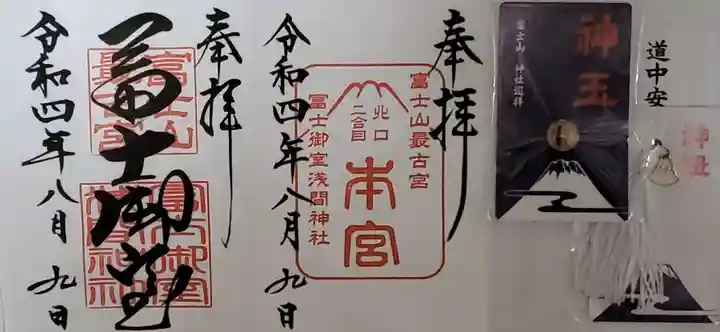 奉拝
富士山
最古宮
冨士御室
冨士御室
浅間神社
令和四年八月九日
奉拝
富士山最古宮
北口
二合目
本宮
冨士御室浅間神社
令和四年八月九日
神玉
富士山 神社巡拝
道中安
神玉